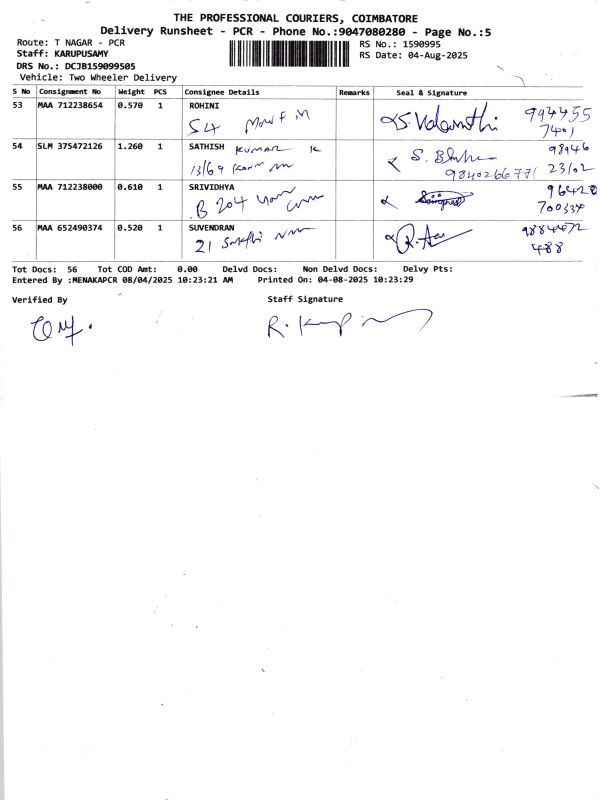 THE PROFESSIONAL COURIERS, COIMBATORE
Delivery Runsheet - PCR - Phone No.:9047080280 - Page No.:5
Route: T NAGAR - PCR
RS No.: 1590995
Staff: KARUPUSAMY
RS Date: 04-Aug-2025
DRS No.: DCJB159099505
Vehicle: Two Wheeler Delivery
S No Consignment No Weight PCS Consignee Details Remarks Seal & Signature
53 MAA 712238654 0.570 1 ROHINI
S4
994455
7401
54 SLM 375472126 1.260 1 SATHISH KUMAR K
98946
13/69
9840266771 23102
55 MAA 712238000 0.610 1 SRIVIDHYA
96428
B 204
700334
56 MAA 652490374 0.520 1 SUVENDRAN
9884472
21
488
Tot Docs: 56 Tot COD Amt: 0.00 Delvd Docs: Non Delvd Docs: Delvy Pts:
Entered By :MENAKAPCR 08/04/2025 10:23:21 AM Printed On: 04-08-2025 10:23:29
Verified By Staff Signature